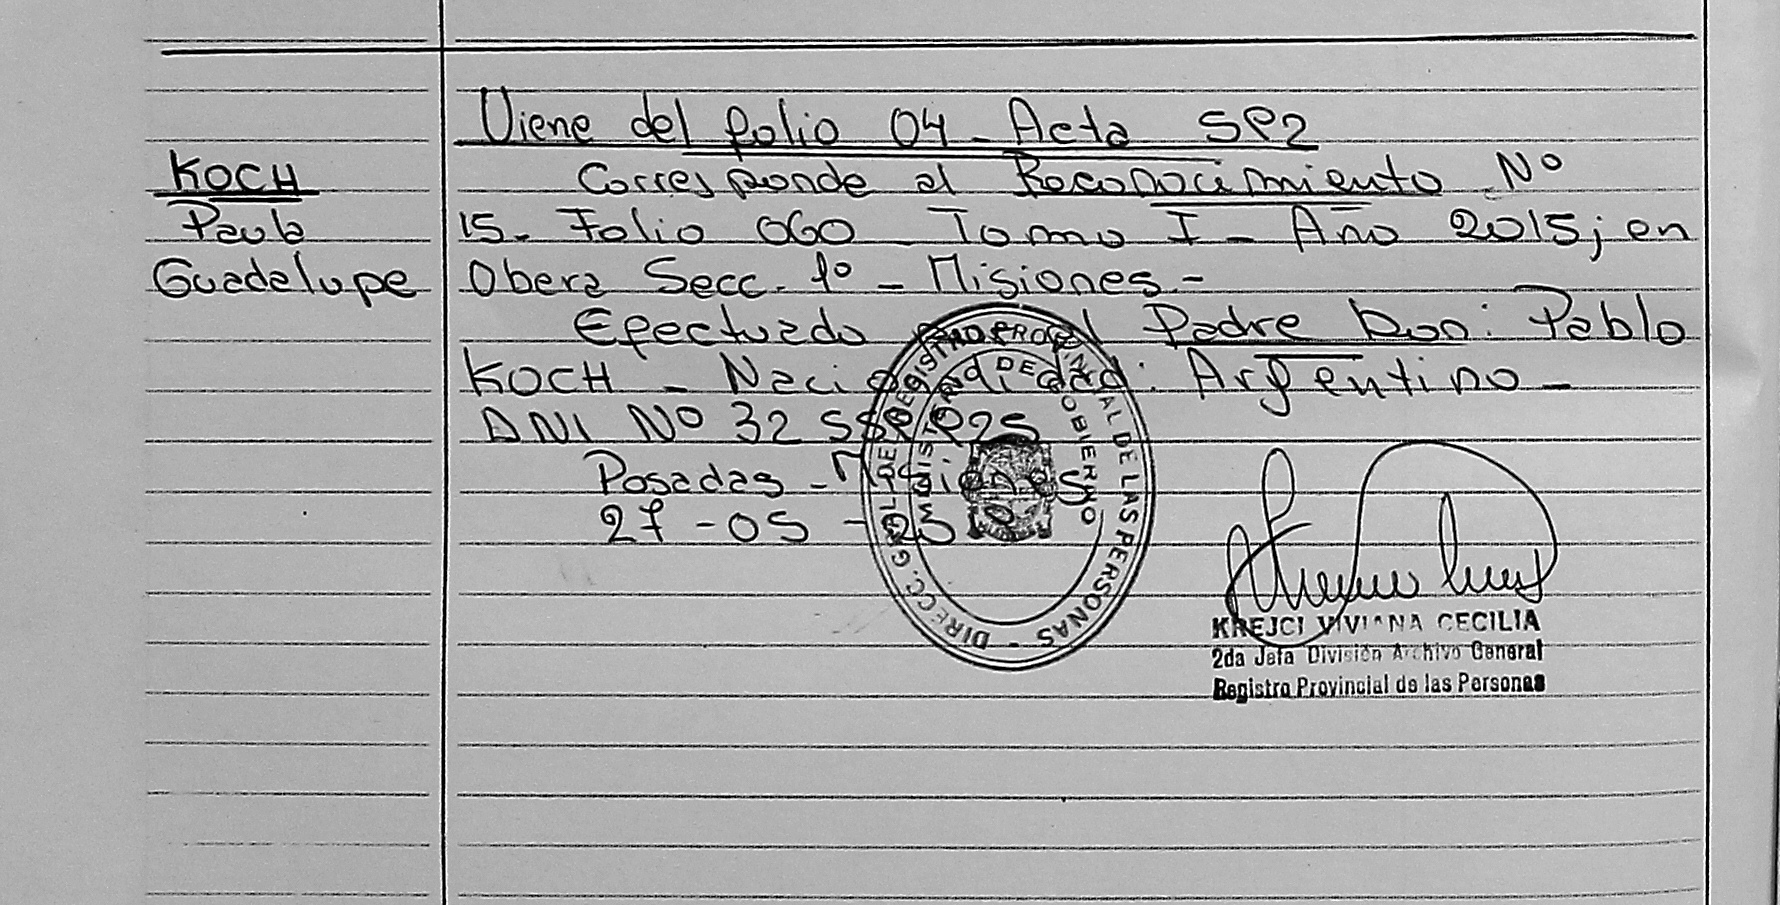 Viene del folio 04 - Acta
KOCH
Paula
Guadalupe
Corresponde al Reconocimiento Nº
15. Folio 060 Tomo I - Año 2015; en
Obera Secc. 1º - Misiones.-
Efectuado por el Padre Don: Pablo
KOCH - Nacionalidad: Argentino -
DNI Nº 32
Posadas - Misiones
27 - 05 -
DIRECC. GRAL. DE REGISTRO PROVINCIAL DE LAS PERSONAS -
MINISTERIO DE GOBIERNO
KREJCI VIVIANA CECILIA
2da Jefa División Archivo General
Registro Provincial de las Personas